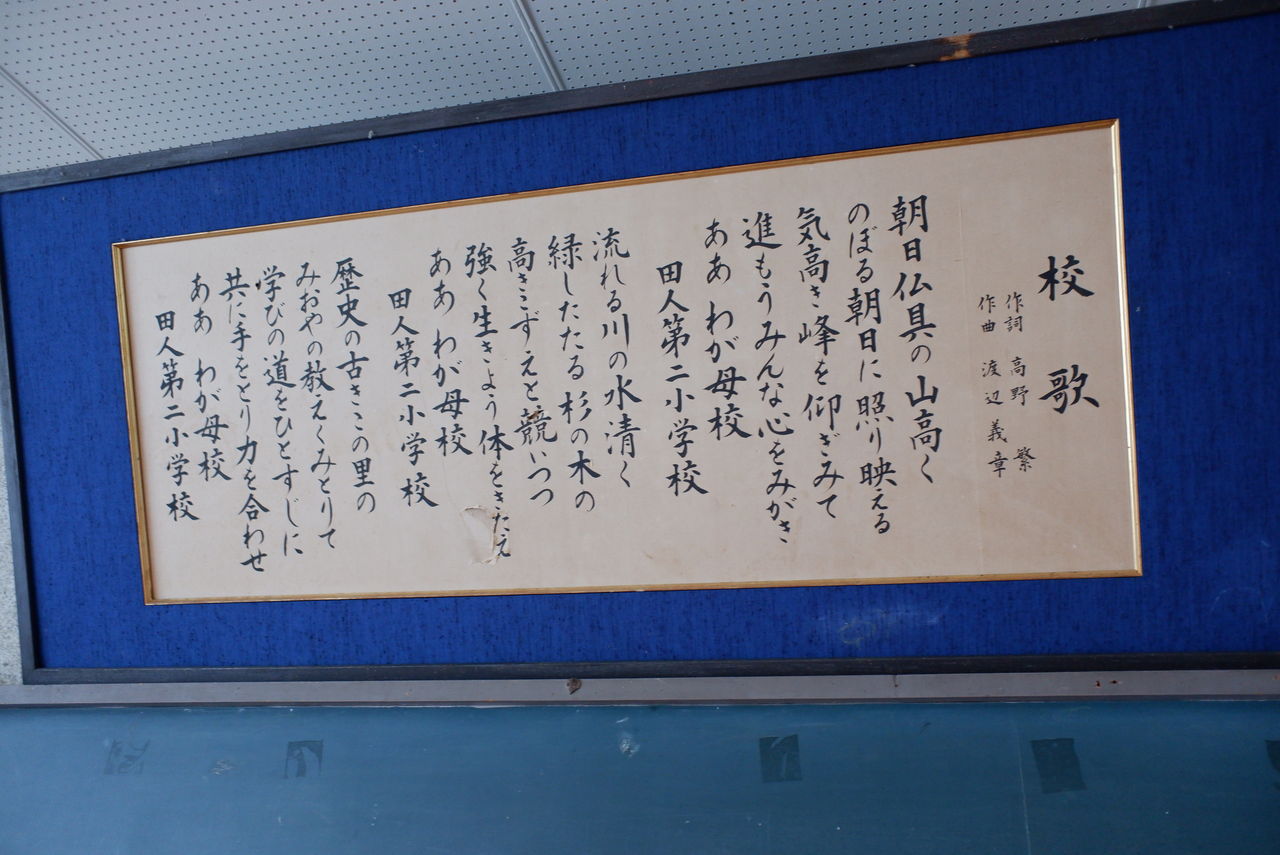 校歌
作詞 高野 繁
作曲 渡辺義章
朝日仏具の山高く
のぼる朝日に照り映える
気高き峰を仰ぎみて
進もうみんな心をみがき
ああ わが母校
田人第二小学校
流れる川の水清く
緑したたる杉の木の
高きこずえと競いつつ
強く生きよう体をきたえ
ああ わが母校
田人第二小学校
歴史の古きこの里の
みおやの教えくみとりて
学びの道をひとすじに
共に手をとり力を合わせ
ああ わが母校
田人第二小学校